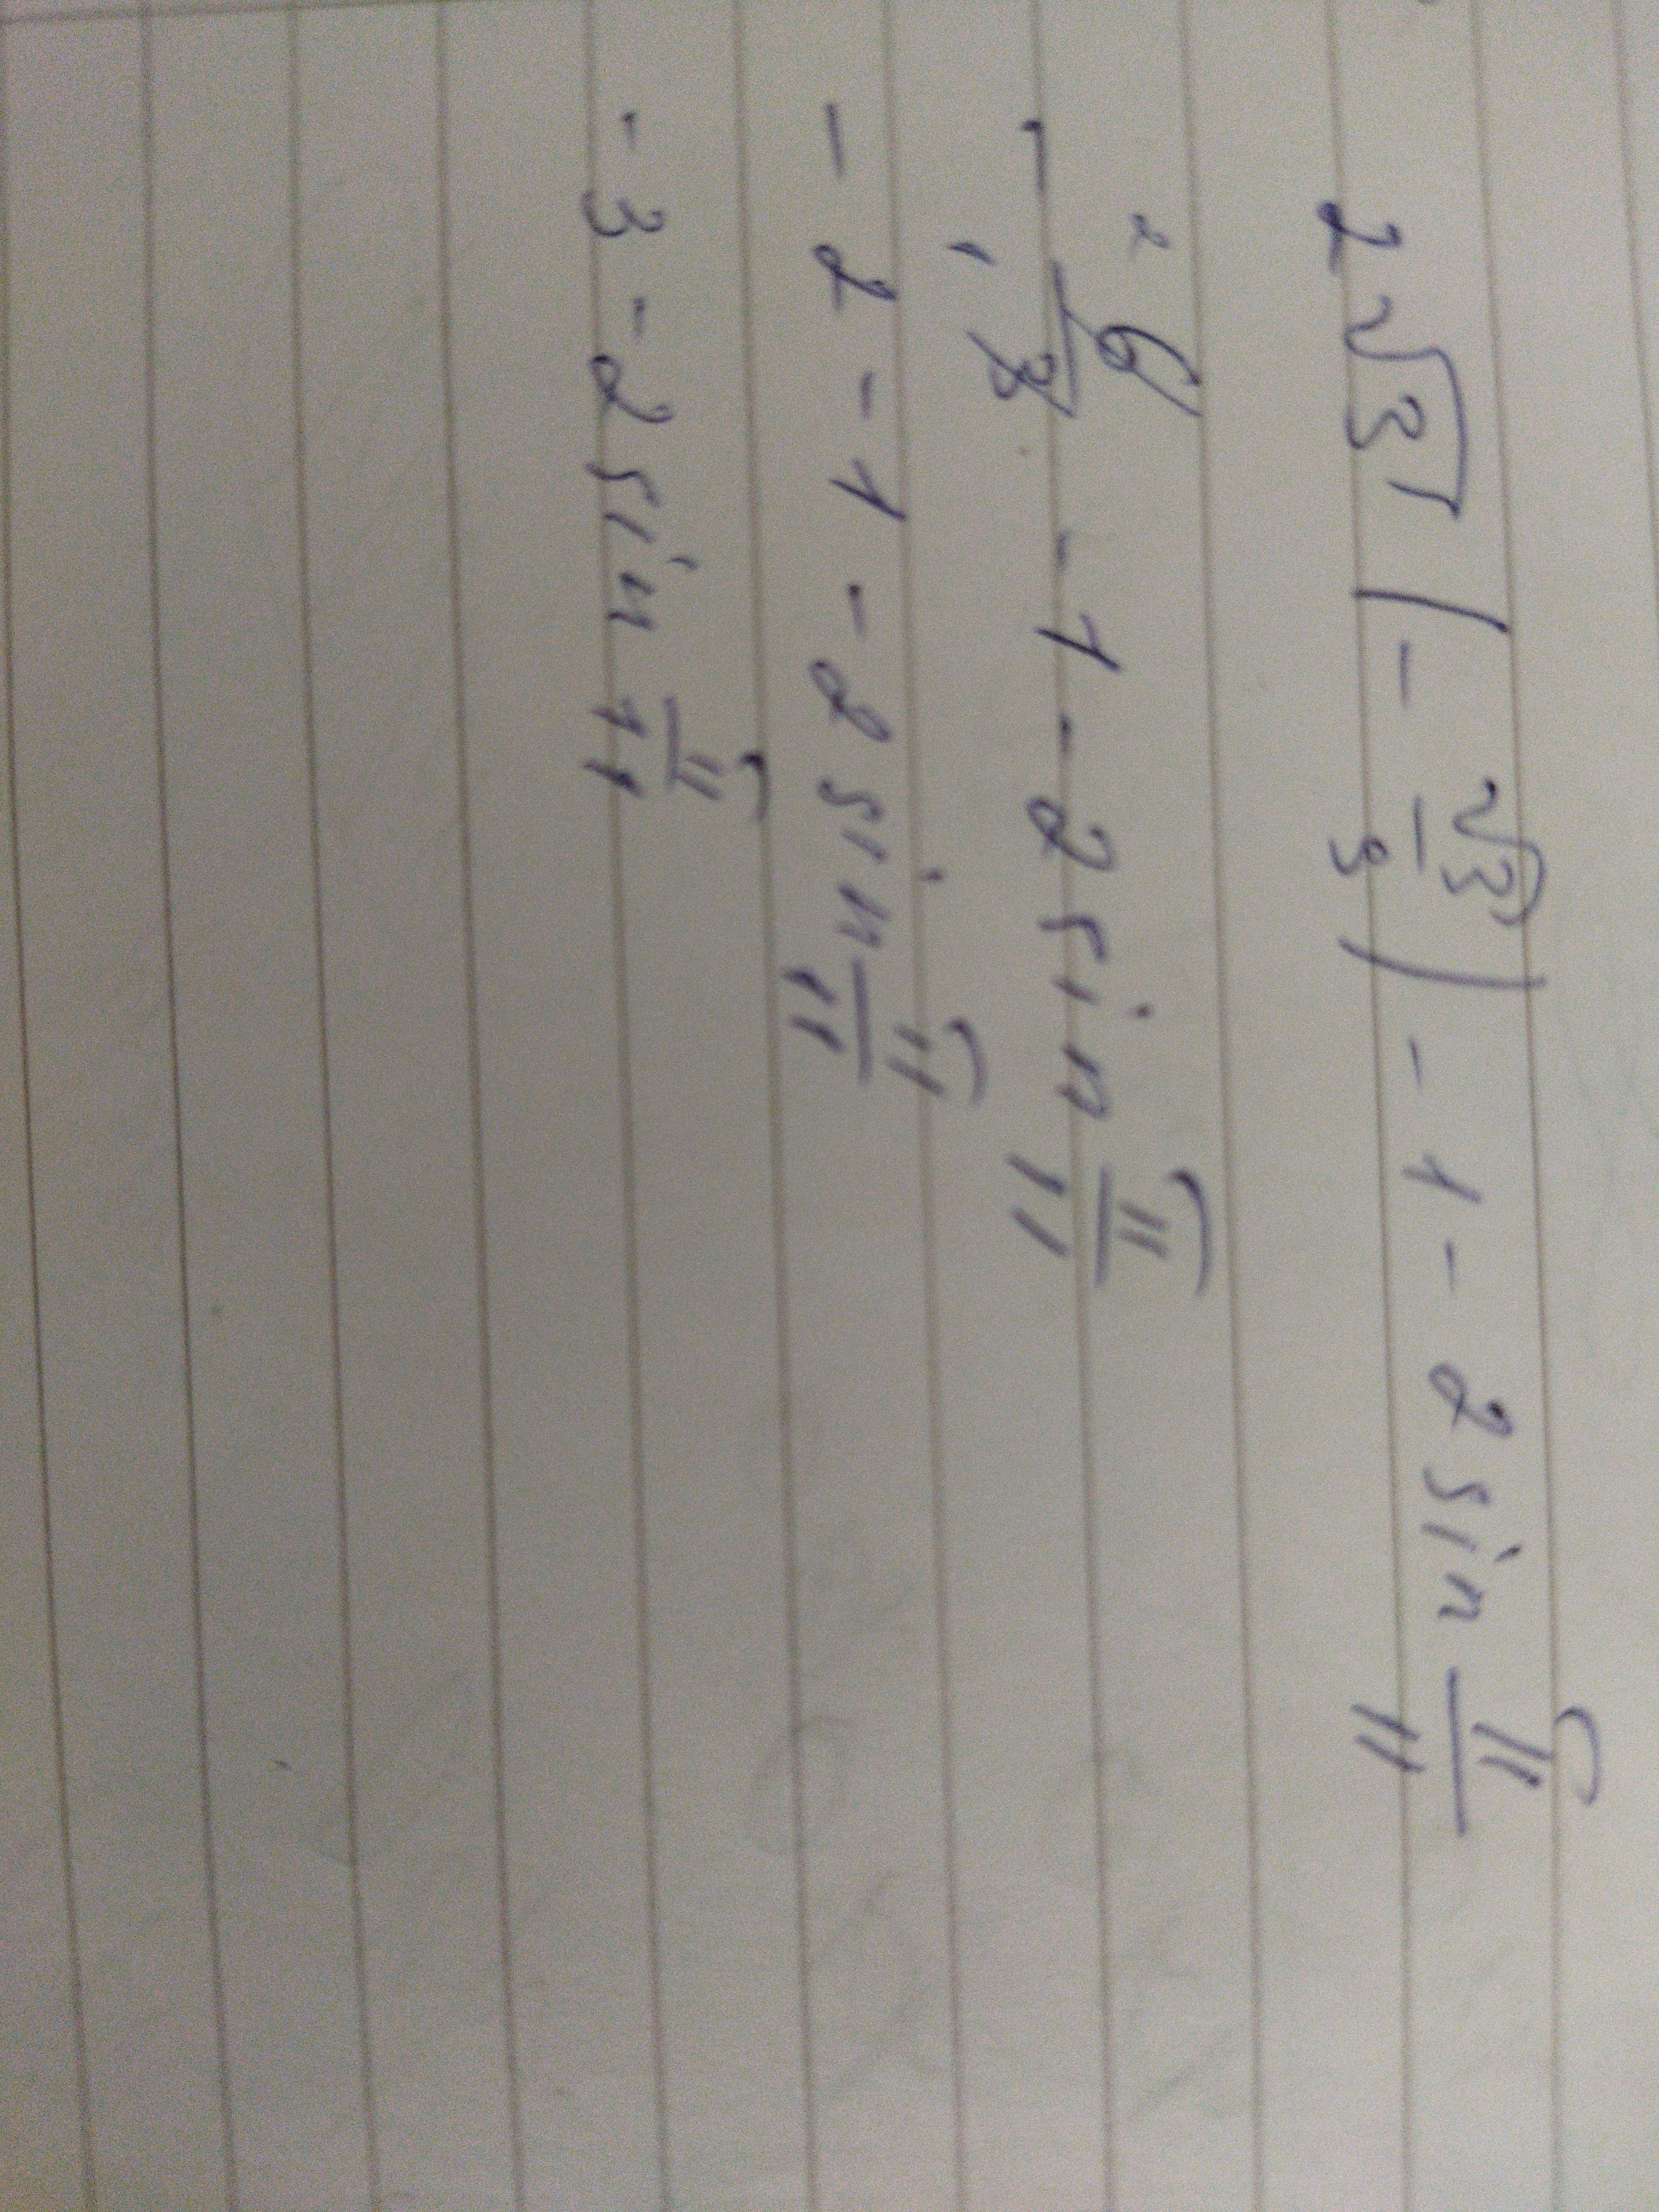 2√3 (- √3/3) - 1 - 2 sin π/11
- ²6/₁3 - 1 - 2 sin π/11
- 2 - 1 - 2 sin π/11
- 3 - 2 sin π/11